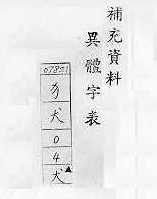 補充資料
異體字表
犭
犬
0
4
犬▲